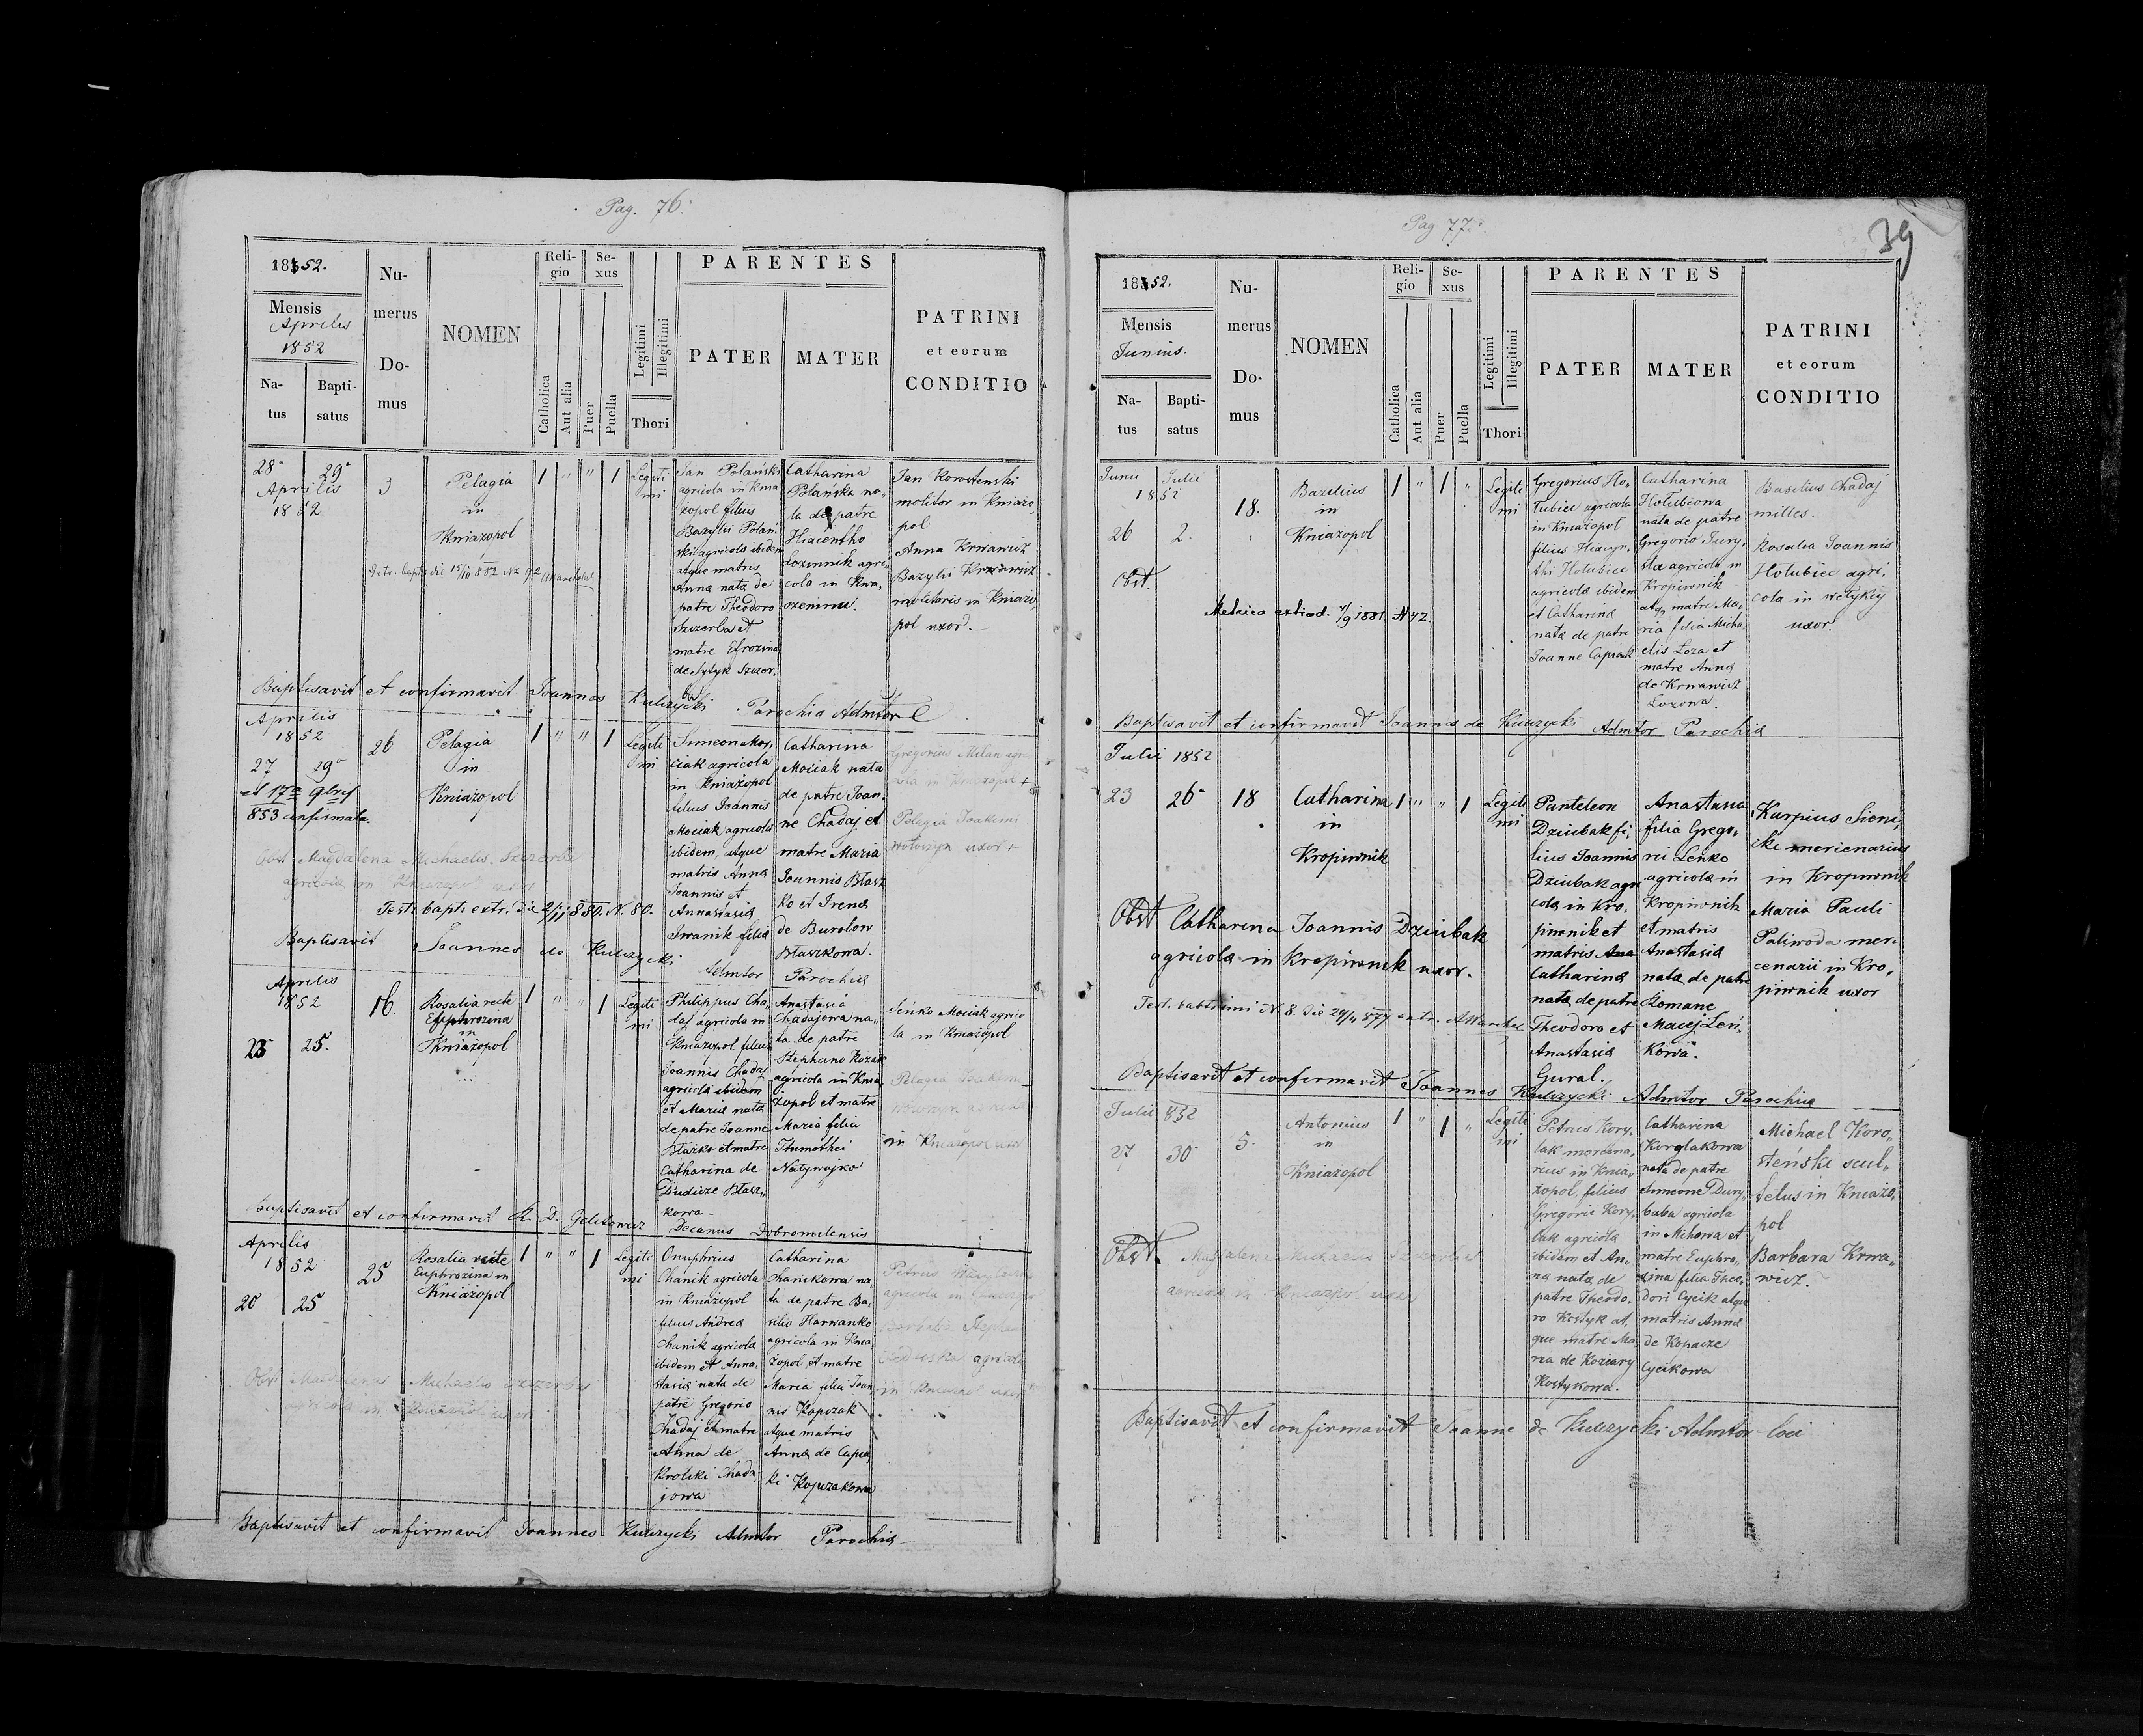 Pag. 76.
1852.
Mensis
Aprilis
1852
Na-
tus
Bapti-
satus
Nu-
merus
Do-
mus
NOMEN
Reli-
gio
Catholica
Aut alia
Se-
xus
Puer
Puella
Legitimi
Illegitimi
Thori
PARENTES
PATER
MATER
PATRINI
et eorum
CONDITIO
28
29
Aprilis
1852
3
Pelagia
in
Kniazopol
1 " " 1
Legiti
mi
Jan Polański
agricola in Knia
zopol filius
Bazylii Polań
ski agricola ibidem
atque matris
Anna nata de
patre Theodoro
Szczerba et
matre Efrozina
de Sytyk Szczer,
ba
Catharina
Polańska na,
ta de patre
Hiacentho
Lozinnik agri,
cola in Kwa,
szenina.
Jan Korostenski
molitor in Kniazo,
pol
Anna Krwawicz
Bazylii Krwawicz
molitoris in Kniazo
pol uxor.
Baptisavit et confirmavit Joannes Kulczycki Parochia Admtor
Aprilis
1852
27
29
et 17a 9bris
853 confirmata.
26
Pelagia
in
Kniazopol
1 " " 1
Legiti
mi
Simeon Moy,
ciak agricola
in Kniażopol
filius Joannis
Mociak agricola
ibidem, atque
matris Anna
Joannis et
Annastasia
Iwanik filia
Catharina
Mociak nata
de patre Joan,
ne Chadaj et
matre Maria
Joannis Błasz
ko et Irena
de Burolow
Błaszkowa.
Gregorius Milan agri
cola in Kniazopol +
Pelagia Joakimi
Wołoszyn uxor +
Obst. Magdalena Michaelis Szczerba
agricola in Kniazopol uxor
Test. bapt. extr. die 2/11 880. N. 80.
Baptisavit Joannes de Kulczycki
Admtor Parochia
Aprilis
1852
23
25.
16.
Rosalia recte
Euphrozina
in
Kniażopol
1 " " 1
Legiti
mi
Philippus Cha,
daj agricola in
Kniazopol filius
Joannis Chadaj
agricola ibidem
et Maria nata
de patre Joanne
Błażko et matre
Catharina de
Dindicze Błasz,
kowa
Anastasia
Chadajowa na,
ta de patre
Stephano Kozak
agricola in Knia,
zopol et matre
Maria filia
Thimothei
Natywajko
Seńko Mociak agrico
la in Kniażopol
Pelagia Joakimi
in Kniazopol uxor
Baptisavit et confirmavit R. D. Geletowicz
Decanus Dobromilensis
Aprilis
1852
20
25
25
Rosalia recte
Euphrozina in
Kniażopol
1 " " 1
Legiti
mi
Onuphrius
Chanik agricola
in Kniażopol
filius Andrea
Chanik agricola
ibidem et Anna,
stasia nata de
patre Gregorio
Chadaj et matre
Anna de
Kroliki Chada
jowa
Catharina
Chanikowa na
ta de patre Ba,
silio Harwanko
agricola in Knia
żopol et matre
Maria filia Joan
nis Kopczak
atque matris
Anna de Capia
ki Kopczakowa
Petrus
agricola in Kniazopol
Barbara Stephani
agricola
in Kniazopol uxor
Obst. Magdalena Michaelis Szczerba
agricola in Kniazopol uxor
Baptisavit et confirmavit Joannes Kulczycki Admtor Parochia
Pag 77.
39
1852.
Mensis
Junius.
Na-
tus
Bapti-
satus
Nu-
merus
Do-
mus
NOMEN
Reli-
gio
Catholica
Aut alia
Se-
xus
Puer
Puella
Legitimi
Illegitimi
Thori
PARENTES
PATER
MATER
PATRINI
et eorum
CONDITIO
Junii
Julii
1852
26
2.
18.
Bazilius
in
Kniażopol
1 " 1 "
Legiti
mi
Gregorius Ho,
łubiec agricola
in Kniażopol
filius Hiacyn,
thi Hołubiec
agricola ibidem
et Catharina
nata de patre
Joanne Capiak
Catharina
Hołubiowa
nata de patre
Gregorio Jury,
sta agricola in
Kropiwnik
atq, matre Ma,
ria filia Micha,
elis Łoza et
matre Anna
de Krwawicz
Lozowa.
Basilius Chadaj
milles.
Rosalia Joannis
Hołubiec agri,
cola in welykij
uxor.
Obst.
Metrica extrad. 4/9 1881. N 42.
Baptisavit et confirmavit Joannes de Kulczycki Admtor Parochia
Julii 1852
23
26
18
Catharina
in
Kropiwnik
1 " " 1
Legiti
mi
Panteleon
Dziubak fi,
lius Joannis
Dziubak agri
cola in Kro,
piwnik et
matris Ana
Catharina
nata de patre
Theodoro et
Anastasia
Gural.
Anastasia
filia Grego,
rii Leńko
agricola in
Kropiwnik
et matris
Anastasia
nata de patre
Romane
Maciej Leń,
kowa.
Karpius Sieni,
ike mercenarius
in Kropiwnik
Maria Pauli
Paliwoda mer,
cenarii in Kro,
piwnik uxor
Obst Catharina Joannis Dziubak
agricola in Kropiwnik uxor.
Test. baptismi N. 8. die 29/4 877 extr.
Baptisavit et confirmavit Joannes Kulczycki Admtor Parochia
Julii 852
27
30
5.
Antonius
in
Kniażopol
1 " 1 "
Legiti
mi
Petrus Kory,
lak mercena,
rius in Knia,
zopol, filius
Gregorii Kory,
lak agricola
ibidem et An,
na nata de
patre Theodo,
ro Kostyk at,
que matre Ma
ria de Koziary
Kostykowa.
Catharina
Korylakowa
nata de patre
Simeone Dury,
baba agricola
in Mihowa et
matre Euphro,
zina filia Theo,
dori Cycik atque
matris Anna
de Kopacze
Cycikowa
Michael Koro,
steński scul,
tetus in Kniażo,
pol
Barbara Krwa,
wicz.
Obst. Magdalena Michaelis Szczerba
agricola in Kniazopol uxor
Baptisavit et confirmavit Joanne de Kulczycki Admtor loci